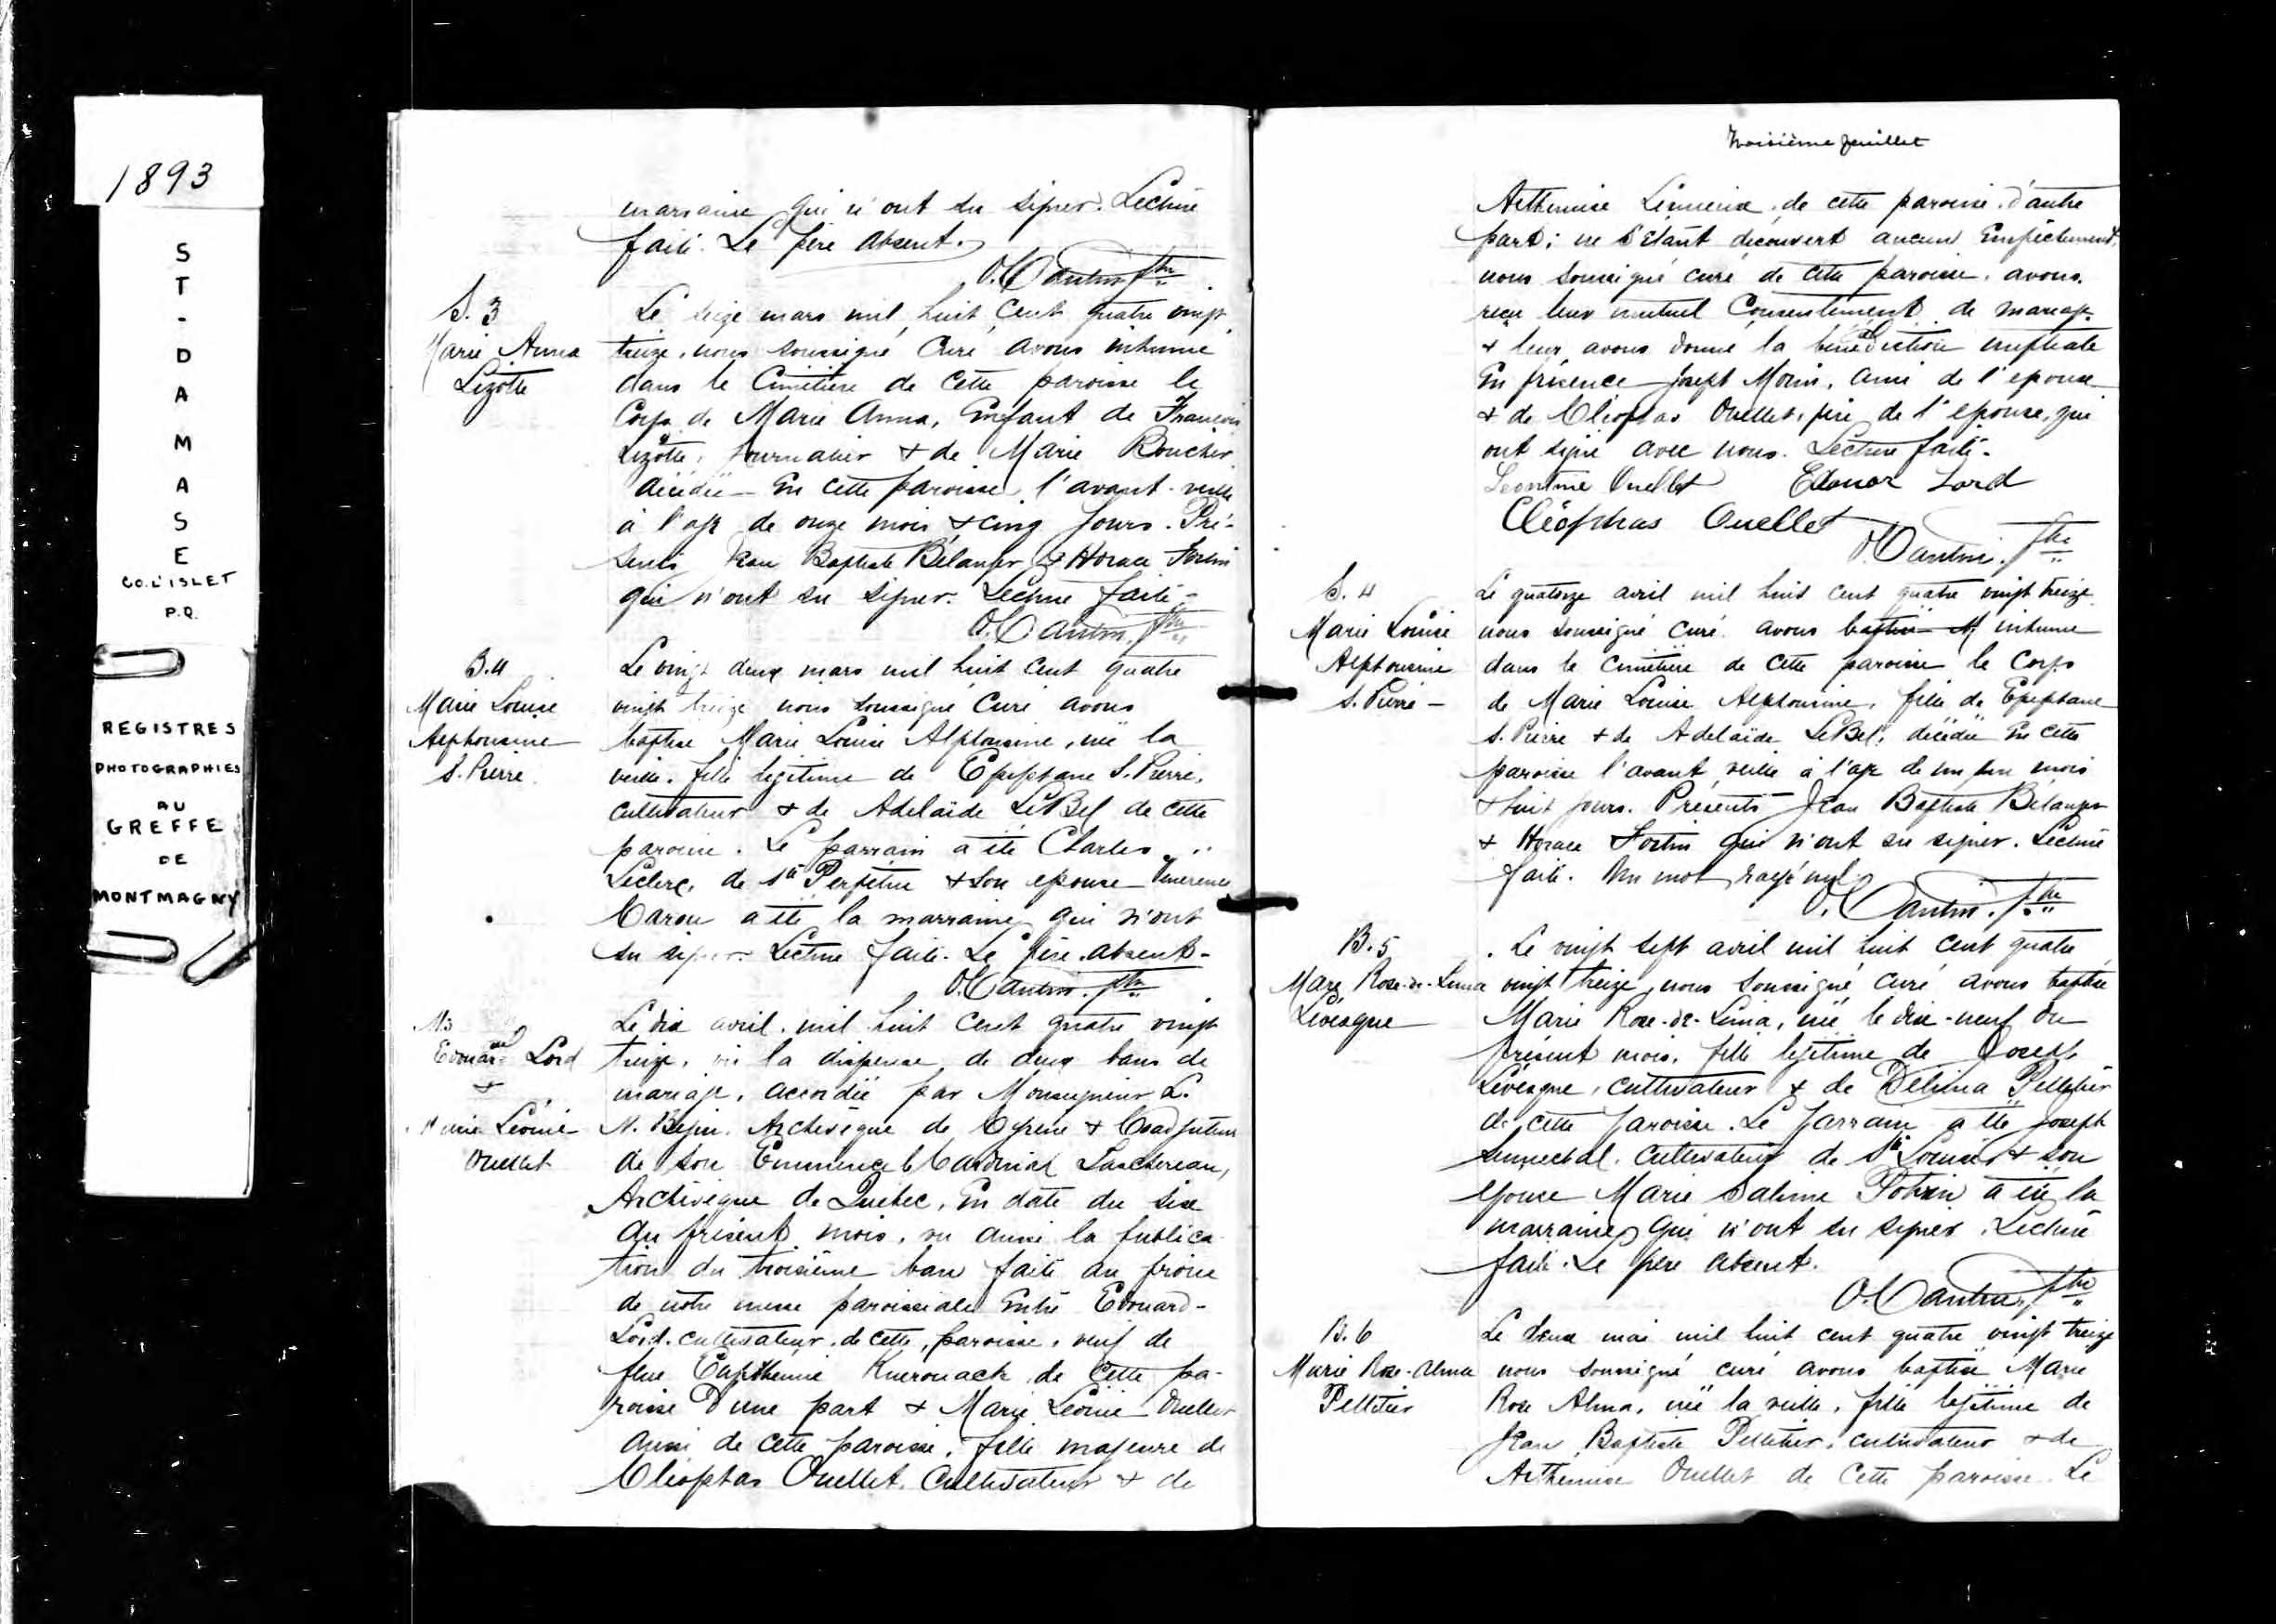 1893
ST-DAMASE
CO. L'ISLET
P.Q.
REGISTRES
PHOTOGRAPHIES
AU
GREFFE
DE
MONTMAGNY
marraine qui n'ont su signer. Lecture
faite. Le père absent.
O. Cantin Ptre
S. 3
Marie Anna
Lizotte
Le seize mars mil huit cent quatre vingt
treize, nous soussigné Curé avons inhumé
dans le Cimetière de cette paroisse le
Corps de Marie Anna, Enfant de François
Lizotte, journalier & de Marie Boucher
décédée En cette paroisse l'avant-veille
à l'age de onze mois & cinq jours. Pré-
sents Jean Baptiste Bélanger & Horace Fortin
qui n'ont su signer. Lecture faite-
O. Cantin Ptre
B.4
Marie Louise
Alphonsine
S. Pierre
Le vingt deux mars mil huit cent quatre
vingt treize nous soussigné Curé avons
baptisé Marie Louise Alphonsine, née la
veille, fille legitime de Epiphane S. Pierre,
cultivateur & de Adelaïde LeBel de cette
paroisse. Le parrain a été Charles
Leclerc, de Ste Perpétue & son epouse Vénérence
Caron a été la marraine qui n'ont
su signer. Lecture faite. Le père absent-
O. Cantin Ptre
M3
Edouard Lord
&
Marie Léonie
Ouellet
Le dix avril mil huit cent quatre vingt
treize, vu la dispense de deux bans de
mariage, accordée par Monseigneur L.
N. Bégin, Archevêque de Cyrène & Coadjuteur
de Son Eminence le Cardinal Taschereau,
Archévêque de Québec, En date du six
du présent mois, vu aussi la publica-
tion du troisième ban faite au prône
de notre messe paroissiale Entre Edouard-
Lord, cultivateur, de cette paroisse, veuf de
feue Euphémie Kuerouack de Cette pa-
roisse d'une part & Marie Léonie Ouellet
aussi de cette paroisse, fille majeure de
Cléophas Ouellet, Cultivateur & de
Troisième feuillet
Arthémise Lemieux, de cette paroisse d'autre
part; ne s'étant découvert aucun Empêchement,
nous soussigné curé de cette paroisse, avons
reçu leur mutuel Consentement de mariage
& leur avons donné la bénédiction nuptiale
En présence Joseph Morin, ami de l'epoux
& de Cléophas Ouellet, père de l'epouse, qui
ont signé avec nous. Lecture faite-
Leontine Ouellet Edouar Lord
Cléophas Ouellet
O. Cantin, Ptre
S. 4
Marie Louise
Alphonsine
S. Pierre -
Le quatorze avril mil huit cent quatre vingt treize
nous soussigné curé avons baptisé M inhumé
dans le cimetière de cette paroisse le Corps
de Marie Louise Alphonsine, fille de Epiphane
S. Pierre & de Adelaïde LeBel, décédée En cette
paroisse l'avant veille à l'age de mois
& huit jours. Présents Jean Baptiste Bélanger
& Horace Fortin qui n'ont su signer. Lecture
faite. Un mot rayé nul
O. Cantin, Ptre
B. 5
Marie Rose-de-Lima
Lévesque
Le vingt sept avril mil huit cent quatre
vingt treize, nous soussigné curé avons baptisé
Marie Rose-de-Lima, née le dix-neuf du
présent mois, fille legitime de Joseph
Lévesque, cultivateur & de Délina Pelletier
de cette paroisse. Le parrain a été Joseph
Sennechal, Cultivateur de Ste Louise & son
épouse Marie Sabine Potvin a été la
marraine qui n'ont su signer. Lecture
faite. Le père absent.
O. Cantin, Ptre
B. 6
Marie Rose-Alma
Pelletier
Le deux mai mil huit cent quatre vingt treize
nous soussigné curé avons baptisé Marie
Rose Alma, née la veille, fille legitime de
Jean Baptiste Pelletier, cultivateur & de
Arthémise Ouellet de cette paroisse. Le